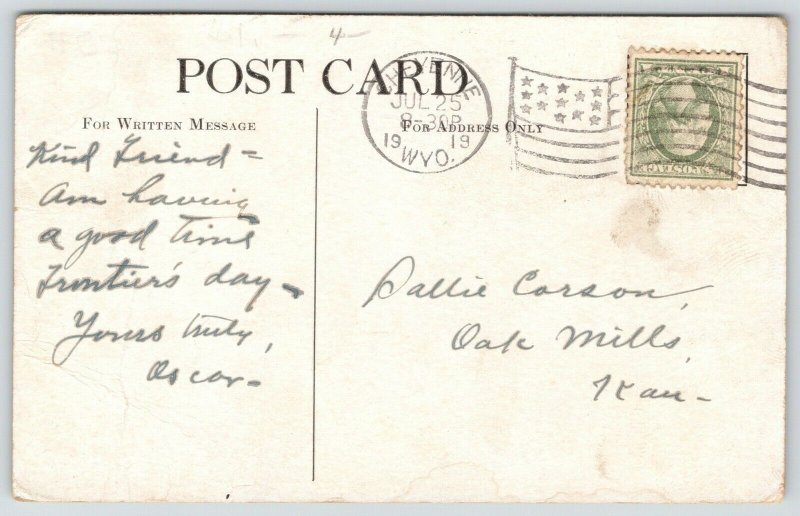 4
POST CARD
CHEYENNE
JUL 25
8-30P
19 19
WYO.
FOR WRITTEN MESSAGE
FOR ADDRESS ONLY
Kind Friend =
Am having
a good time
Frontier's day -
Yours truly,
Oscar -
Sallie Corson,
Oak Mills,
Kan -